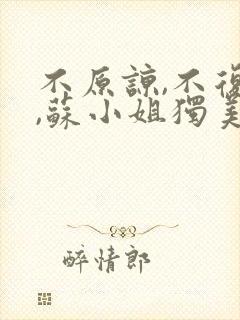 不原諒,不復
,蘇小姐獨美
醉情郎